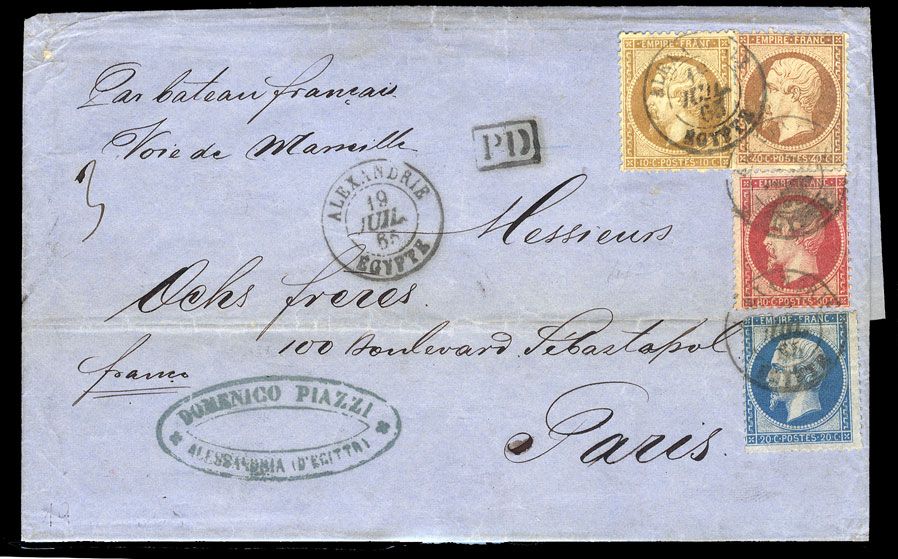 Par bateau français
Voie de Marseille
PD
EMPIRE FRANC
10 C POSTES 10 C
EMPIRE FRANC
40 C POSTES 40 C
EGYPTE
ALEXANDRIE
19
JUIL.
65
EGYPTE
Messieurs
Ochs frères.
100 Boulevard Sébastopol
franco
Paris.
EMPIRE FRANC
80 C POSTES 80 C
EMPIRE FRANC
20 C POSTES 20 C
DOMENICO PIAZZI
ALESSANDRIA (D'EGITTO)